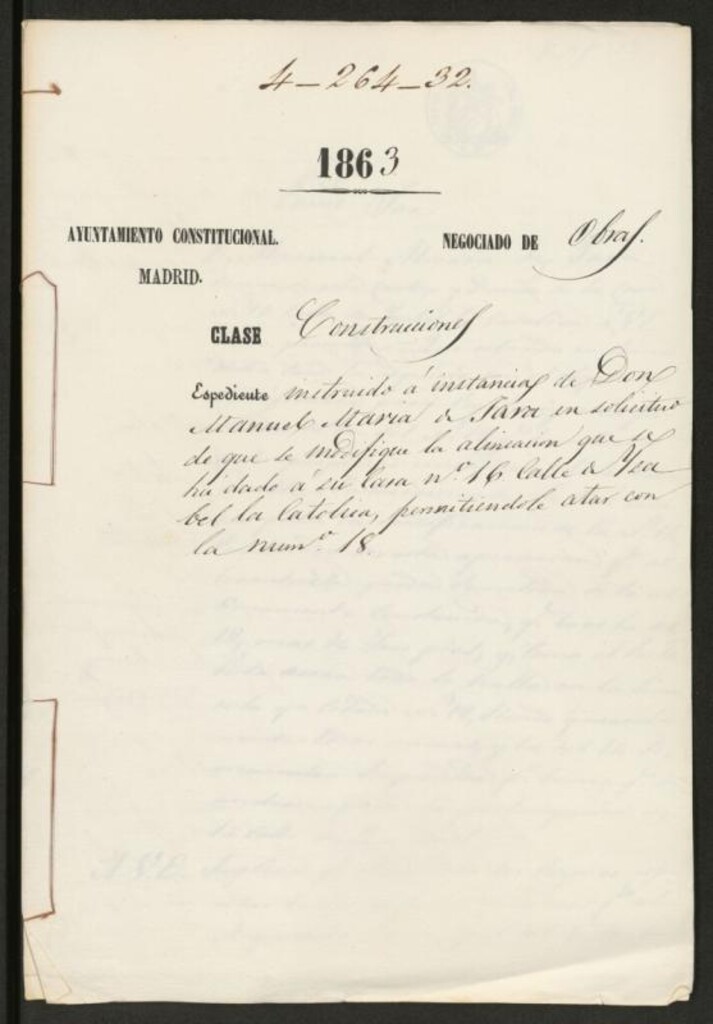 4-264-32.
1863
AYUNTAMIENTO CONSTITUCIONAL.
MADRID.
NEGOCIADO DE Obras.
CLASE Construcciones
Espediente instruido á instancias de Don
Manuel Maria de in solicitud
de que se modifique la alineacion que se
ha dado á su Casa nº. 16 Calle de Ysa
bel la Catolica, permitiendole atar con
la numº. 18.